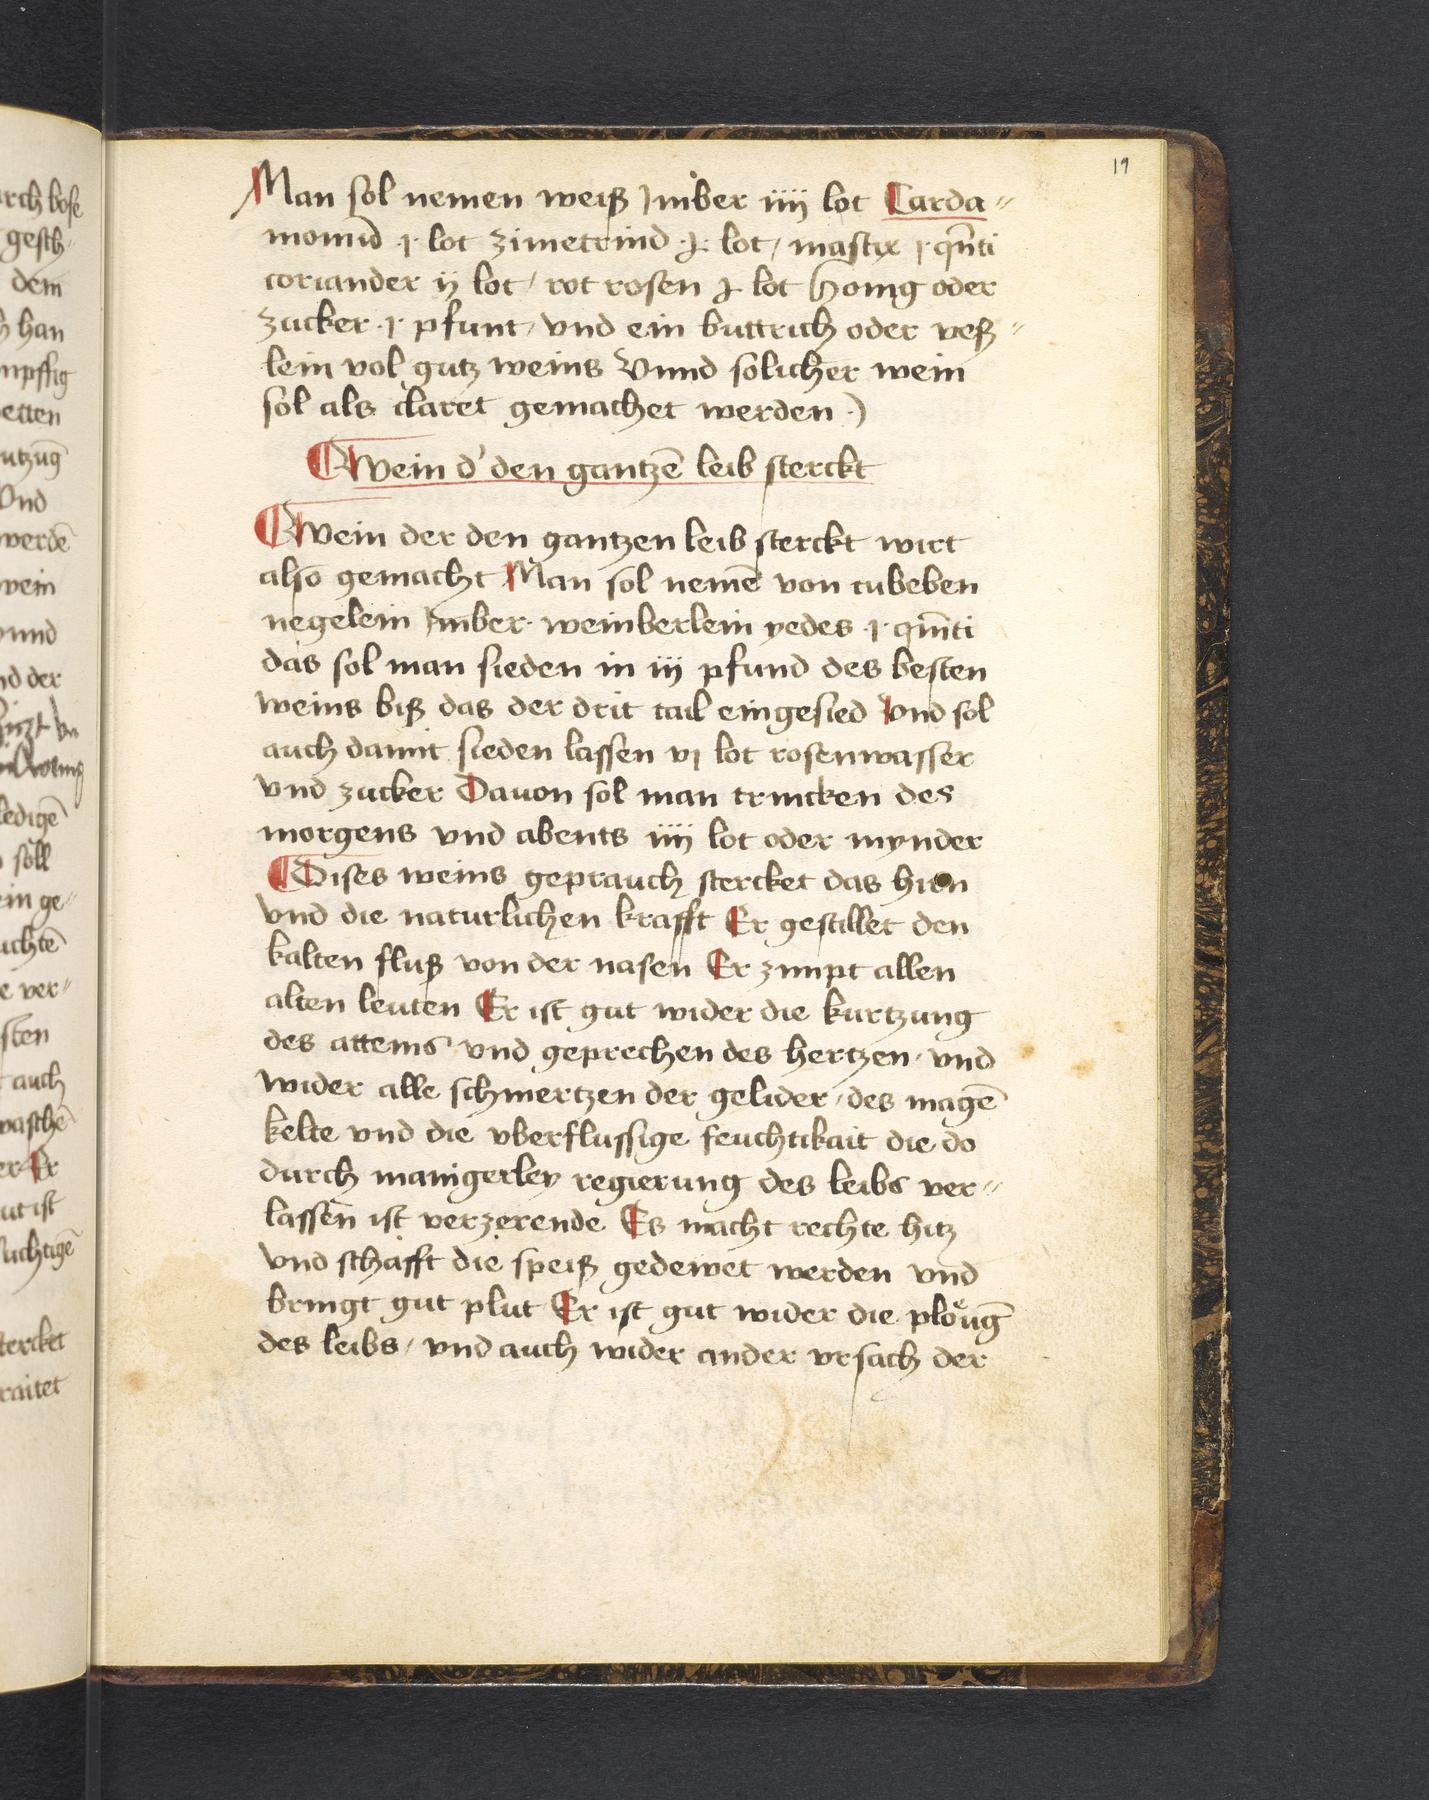 19
Man sol nemen weiß Jmber iiij lot Carda⸗
momū ·j· lot zimetrind ·j· lot / mastix j · qn̄ti
coriander ij lot / rot rosen j lot Honig oder
zucker · j · pfunt / vnd ein buttrich oder veß⸗
lein vol gutz weins Vnnd solicher wein
sol als claret gemachet werden ·)
Wein d' den gantzē leib sterckt
Wein der den gantzen leib sterckt wirt
also gemacht Man sol nemē von cubeben
negelein Jmber · weinberlein yedes · j · quīnti
das sol man sieden in iij pfund des besten
weins biß das der drit tail eingesied Vnd sol
auch damit sieden lassen vj lot rosenwasser
vnd zucker Dauon sol man trincken des
morgens vnd abents iiij lot oder mynder
Dises weins geprauch stercket das hirn
vnd die naturlichen krafft Er gestillet den
kalten fluß von der nasen Er zimpt allen
alten leuten Er ist gut wider die kurtzung
des attems vnd geprechen des hertzen / vnd
wider alle schmertzen der gelider / des magē
kelte vnd die vberflussige feuchtikait die do
durch manigerley regierung des leibs ver⸗
lassen ist verzerende Es macht rechte hitz
vnd schafft die speiß gedewet werden vnd
bringt gut plut Er ist gut wider die ploͤuḡ
des leibs / vnd auch wider ander vrsach der